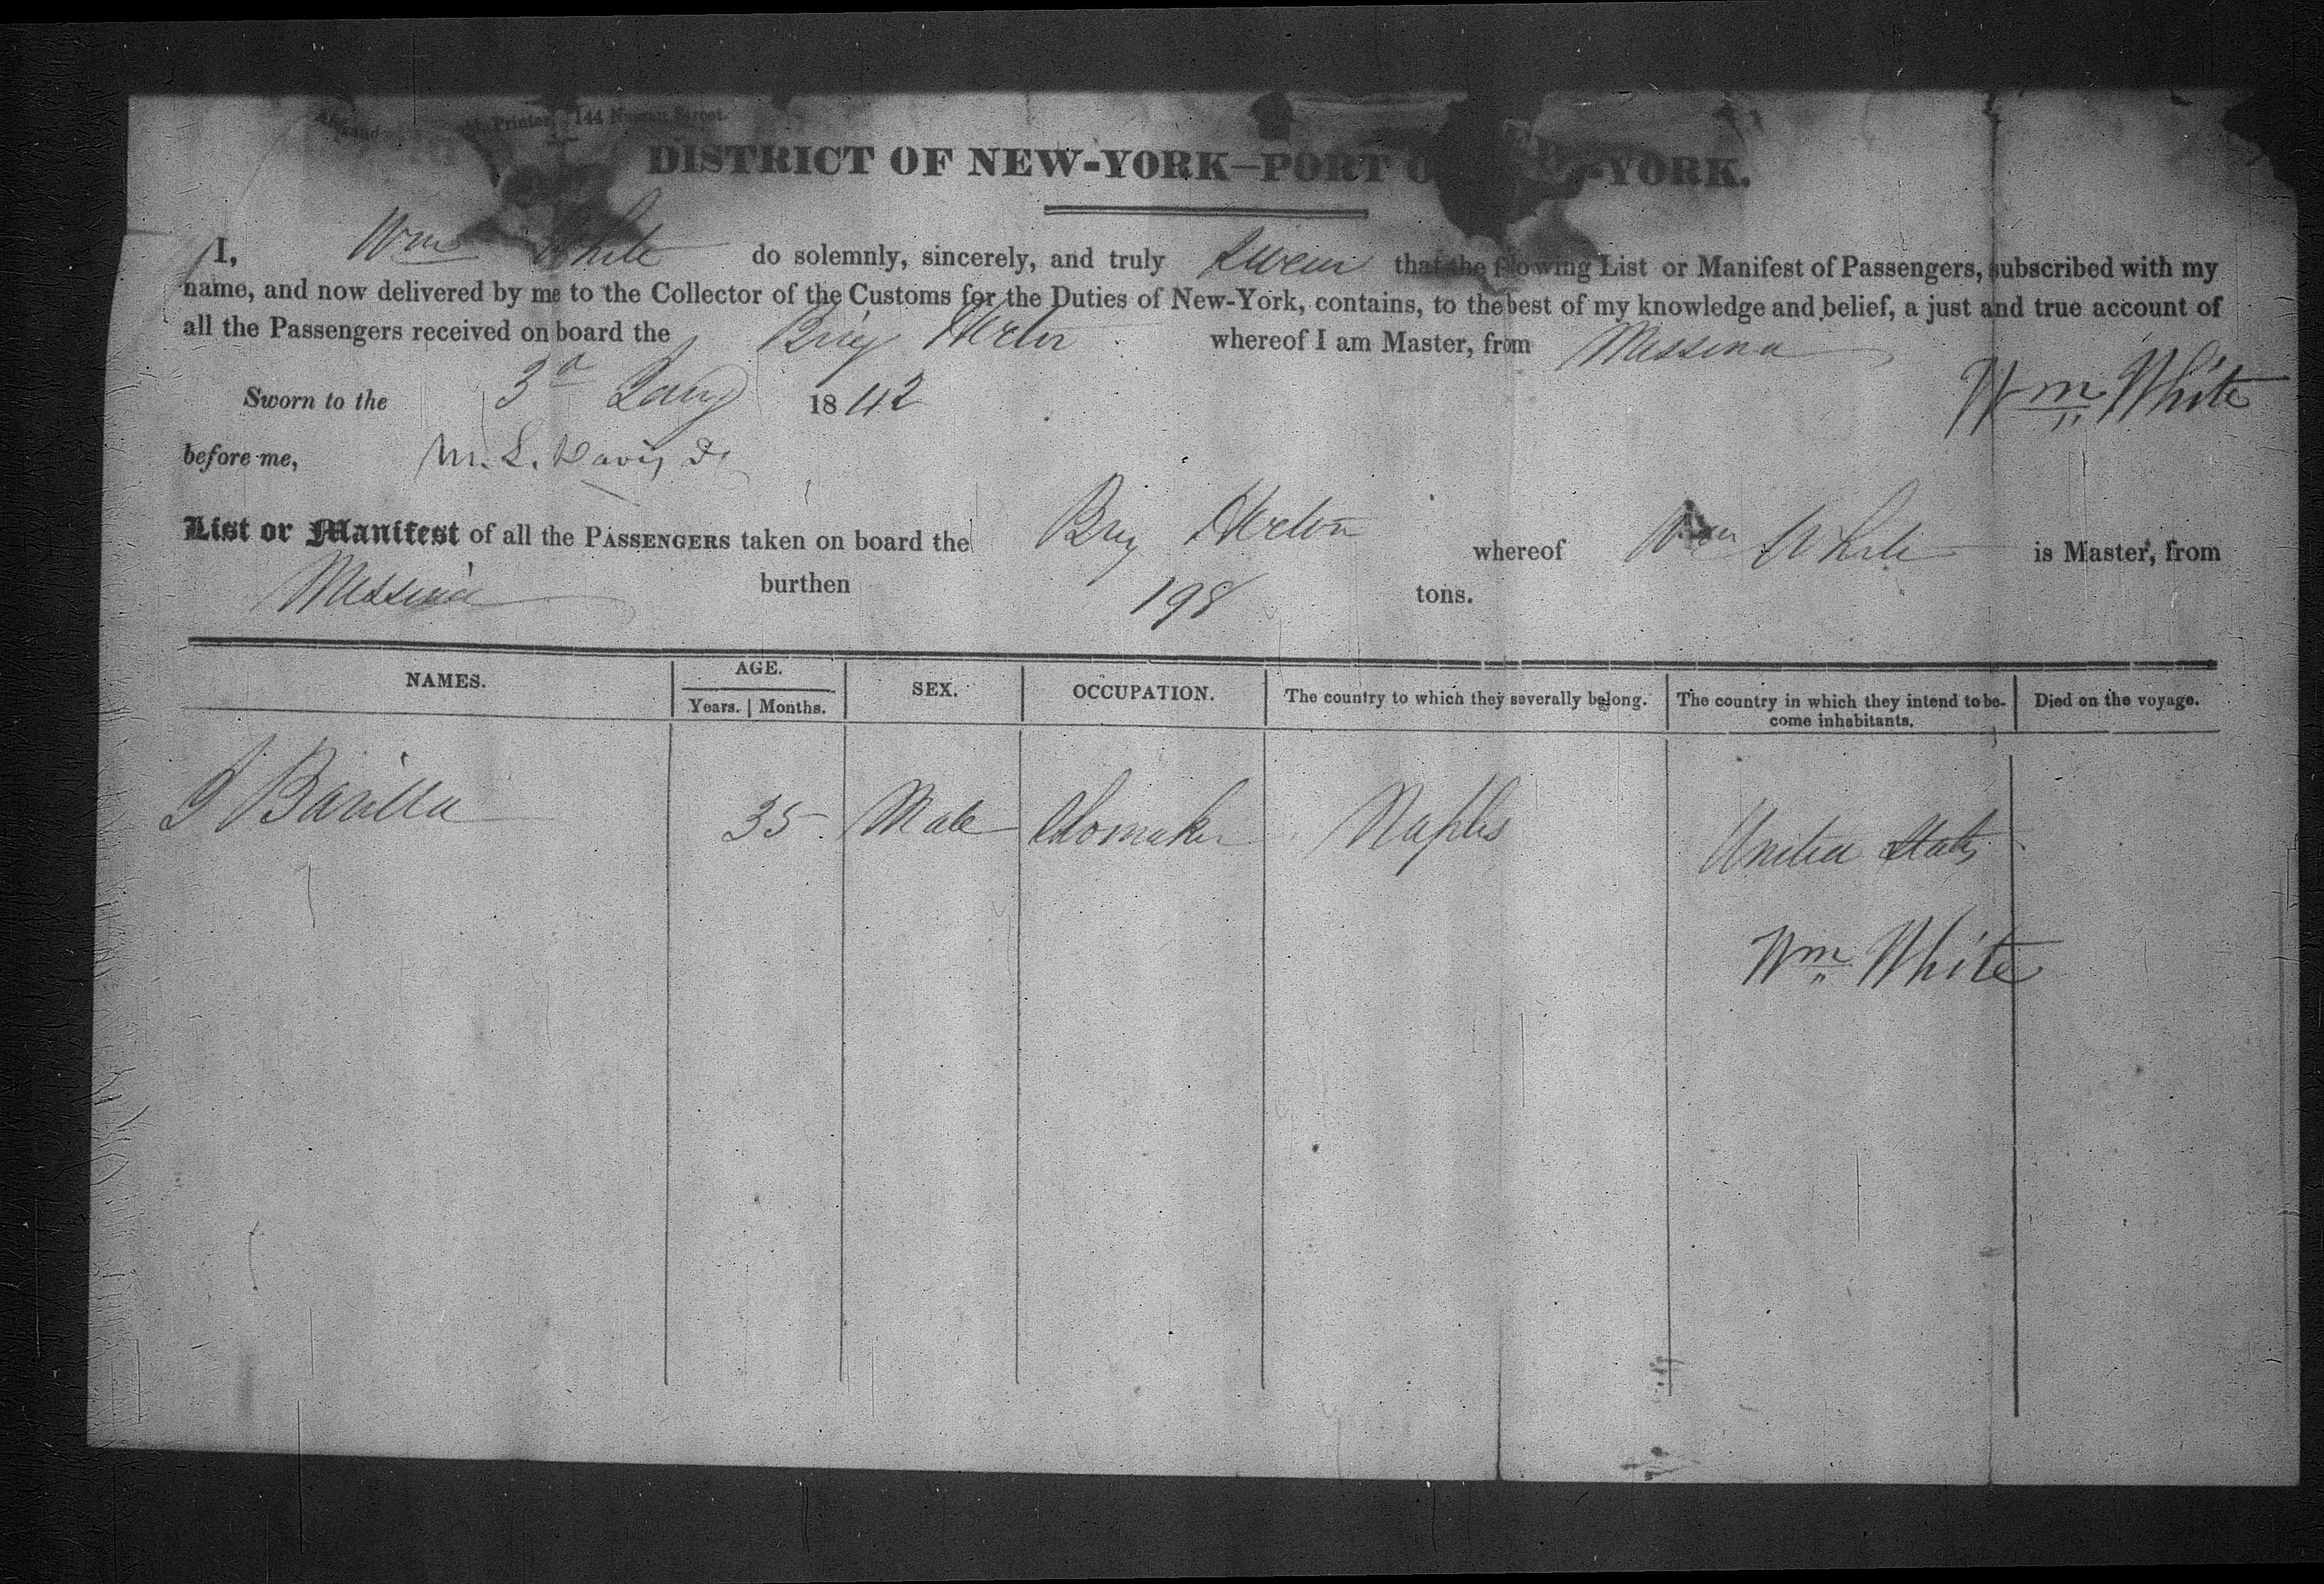 Printer 144 Nassau Street.
DISTRICT OF NEW-YORK—PORT O -YORK.
I, Wm White do solemnly, sincerely, and truly swear that the following List or Manifest of Passengers, subscribed with my
name, and now delivered by me to the Collector of the Customs for the Duties of New-York, contains, to the best of my knowledge and belief, a just and true account of
all the Passengers received on board the Brig whereof I am Master, from Messina
Wm White
Sworn to the 3d 1842
before me, M. L. Davis
List or Manifest of all the PASSENGERS taken on board the Brig whereof Wm White is Master, from
Messina burthen 198 tons.
NAMES. AGE. Years. Months. SEX. OCCUPATION. The country to which they severally belong. The country in which they intend to become inhabitants. Died on the voyage.
Barilla 35 Male Naples United States
Wm White